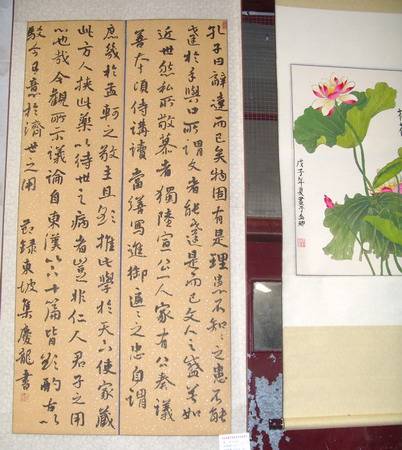 孔子曰辭達而已矣物固有是理患不知之患不能
達於手與口所謂文者能達是而已文人之盛莫如
近世然私所敬慕者獨陸宣公一人家有公奏議
善本頃侍講讀嘗繕寫進御區區之忠自謂
庶幾於孟軻之敬王且欲推此學於天下使家藏
此方人挾此藥以待世之病者豈非仁人君子之用
心也哉今觀所示議論自東漢以下十篇皆欲酌古以
馭今有意於濟世之用
節錄東坡集慶龍書
戊子年夏